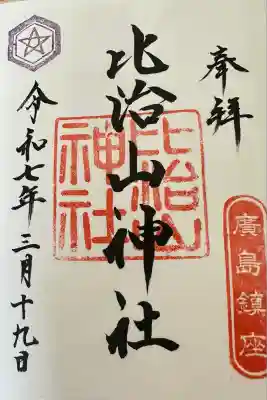 奉拝
廣島鎮座
比治山神社
比治山
神社
令和七年三月十九日